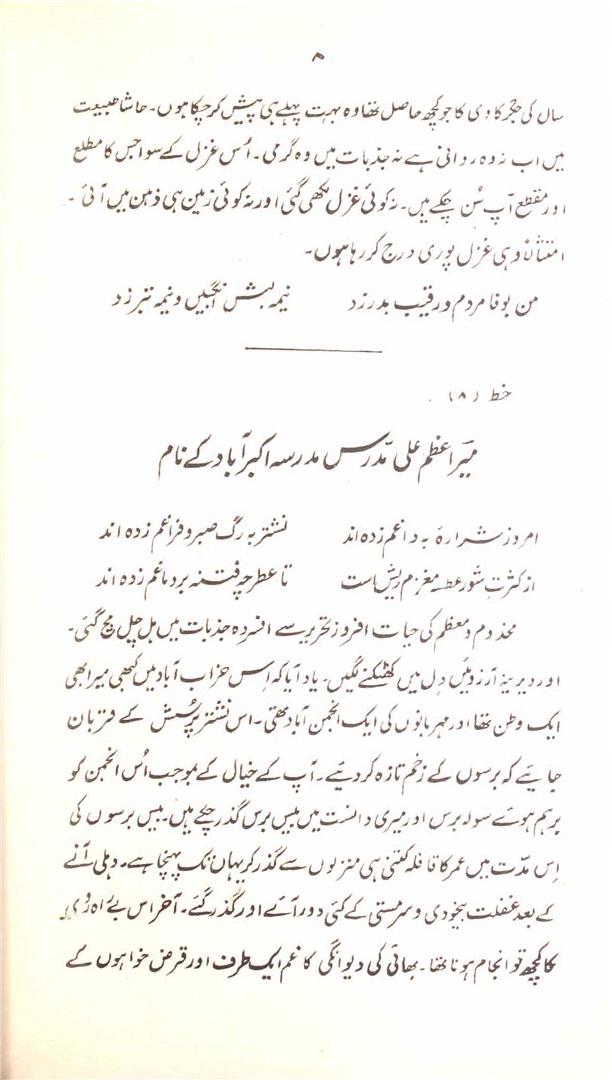 ۸
سال کی جگر کاوی کا جو کچھ حاصل تھا وہ بہت پہلے ہی پیش کر چکا ہوں۔ حاشا طبیعت
میں اب نہ وہ روانی ہے نہ جذبات میں وہ گرمی۔ اُس غزل کے سوا جس کا مطلع
اور مقطع آپ سُن چکے ہیں۔ نہ کوئی غزل لکھی گئی اور نہ کوئی زمین ہی ذہن میں آئی۔
امتثالاً وہی غزل پوری درج کر رہا ہوں۔
من بوفا مردم و رقیب بدر زد نیمہ لبش انگبیں و نیمہ تبرزد
خط (۸)
میر اعظم علی مدّرس مدرسہ اکبر آباد کے نام
امروز شرارۂ بہ داغم زدہ اند نشتر بہ رگ صبر و فراغم زدہ اند
از کثرتِ شور عطسہ مغزم ریش است تا عطر چہ فتنہ بر دماغم زدہ اند
مخدوم و معظم کی حیات افروز تحریر سے افسردہ جذبات میں ہل چل مچ گئی۔
اور دیرینہ آرزوئیں دِل میں کھٹکنے لگیں۔ یاد آیا کہ اِس خراب آباد میں کبھی میرا بھی
ایک وطن تھا اور مہربانوں کی ایک انجمن آباد تھی۔ اس نشتر پرسش کے قربان
جایئے کہ برسوں کے زخم تازہ کر دیئے۔ آپ کے خیال کے بموجب اُس انجمن کو
برہم ہوئے سولہ برس اور میری دانست میں بیس برس گذر چکے ہیں۔ بیس برسوں کی
اِس مدّت میں عمر کا قافلہ کتنی ہی منزلوں سے گذر کر یہاں تک پہنچا ہے۔ دہلی آنے
کے بعد غفلت بیخودی و سرمستی کے کئی دور آئے اور گذر گئے۔ آخر اس بے راہ روی
کا کچھ تو انجام ہونا تھا۔ بھائی کی دیوانگی کا غم ایک طرف اور قرض خواہوں کے